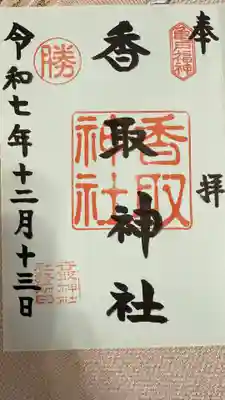 奉拝
亀戸福神
香取神社
香取神社
勝
令和七年十二月十三日